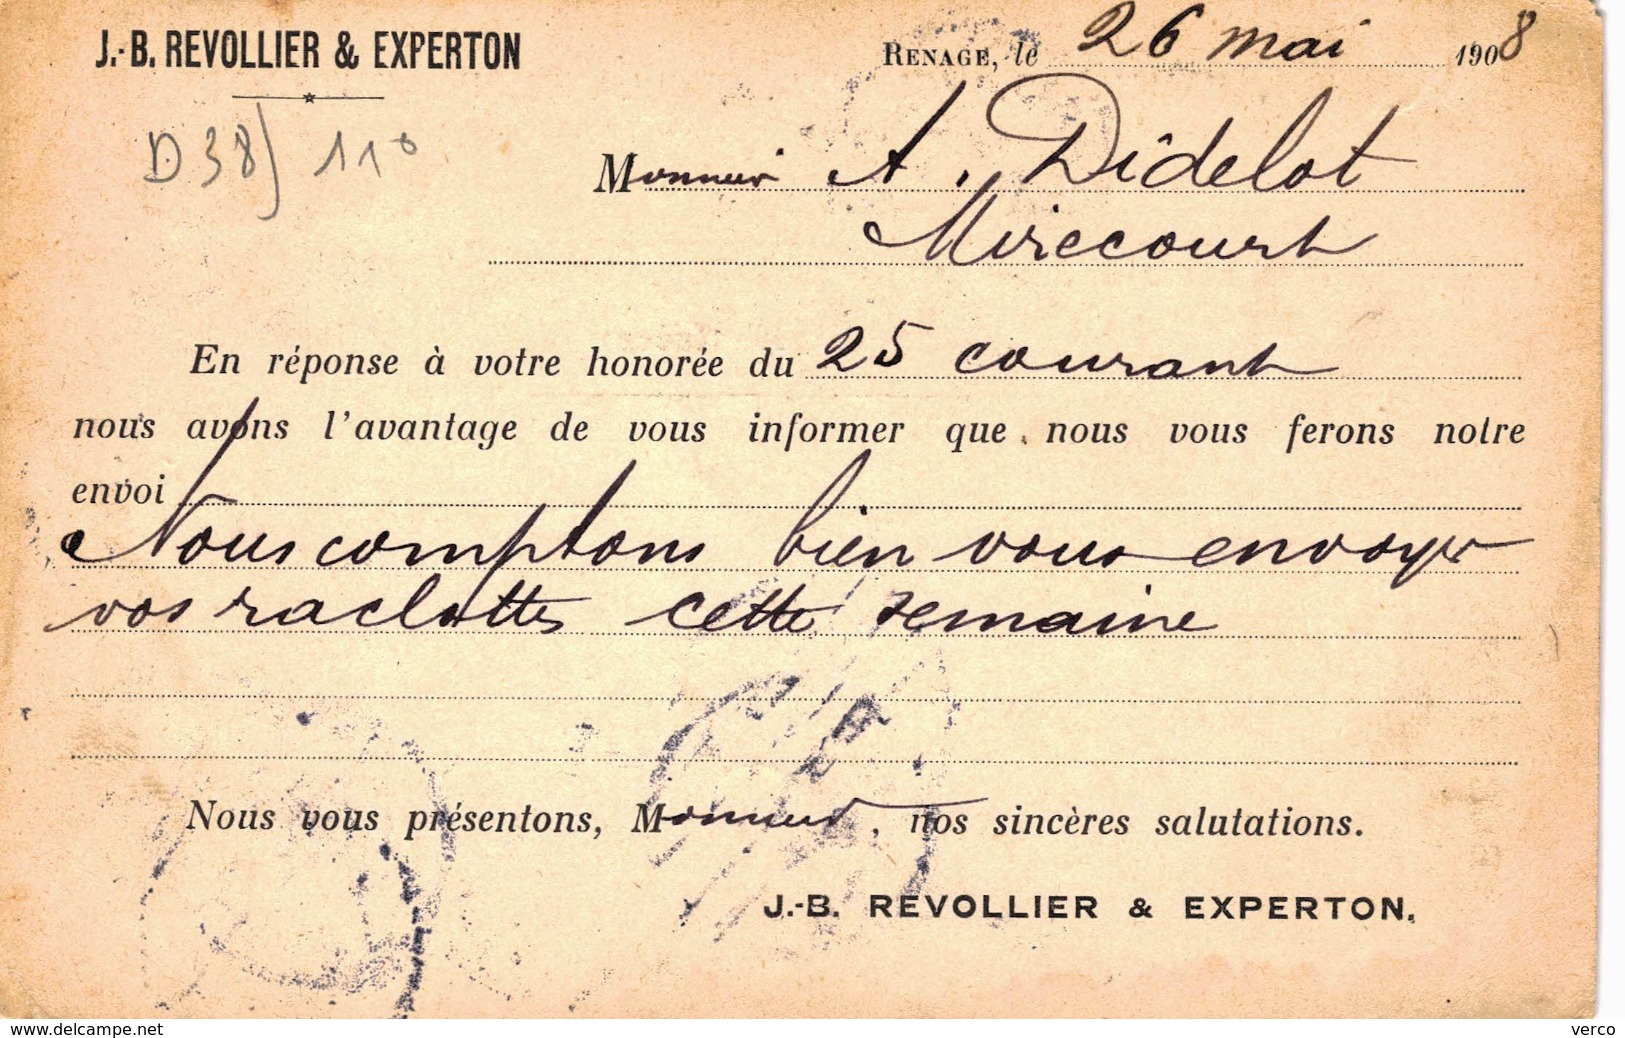 J.-B. REVOLLIER & EXPERTON
RENAGE, le 26 mai 1908
D38) 11°
Monsieur A. Didelot
Mirecourt
En réponse à votre honorée du 25 courant
nous avons l'avantage de vous informer que nous vous ferons notre
envoi
Nous comptons bien vous envoyer
vos raclettes cette semaine
Nous vous présentons, Monsieur, nos sincères salutations.
J.-B. REVOLLIER & EXPERTON.
www.delcampe.net
verco